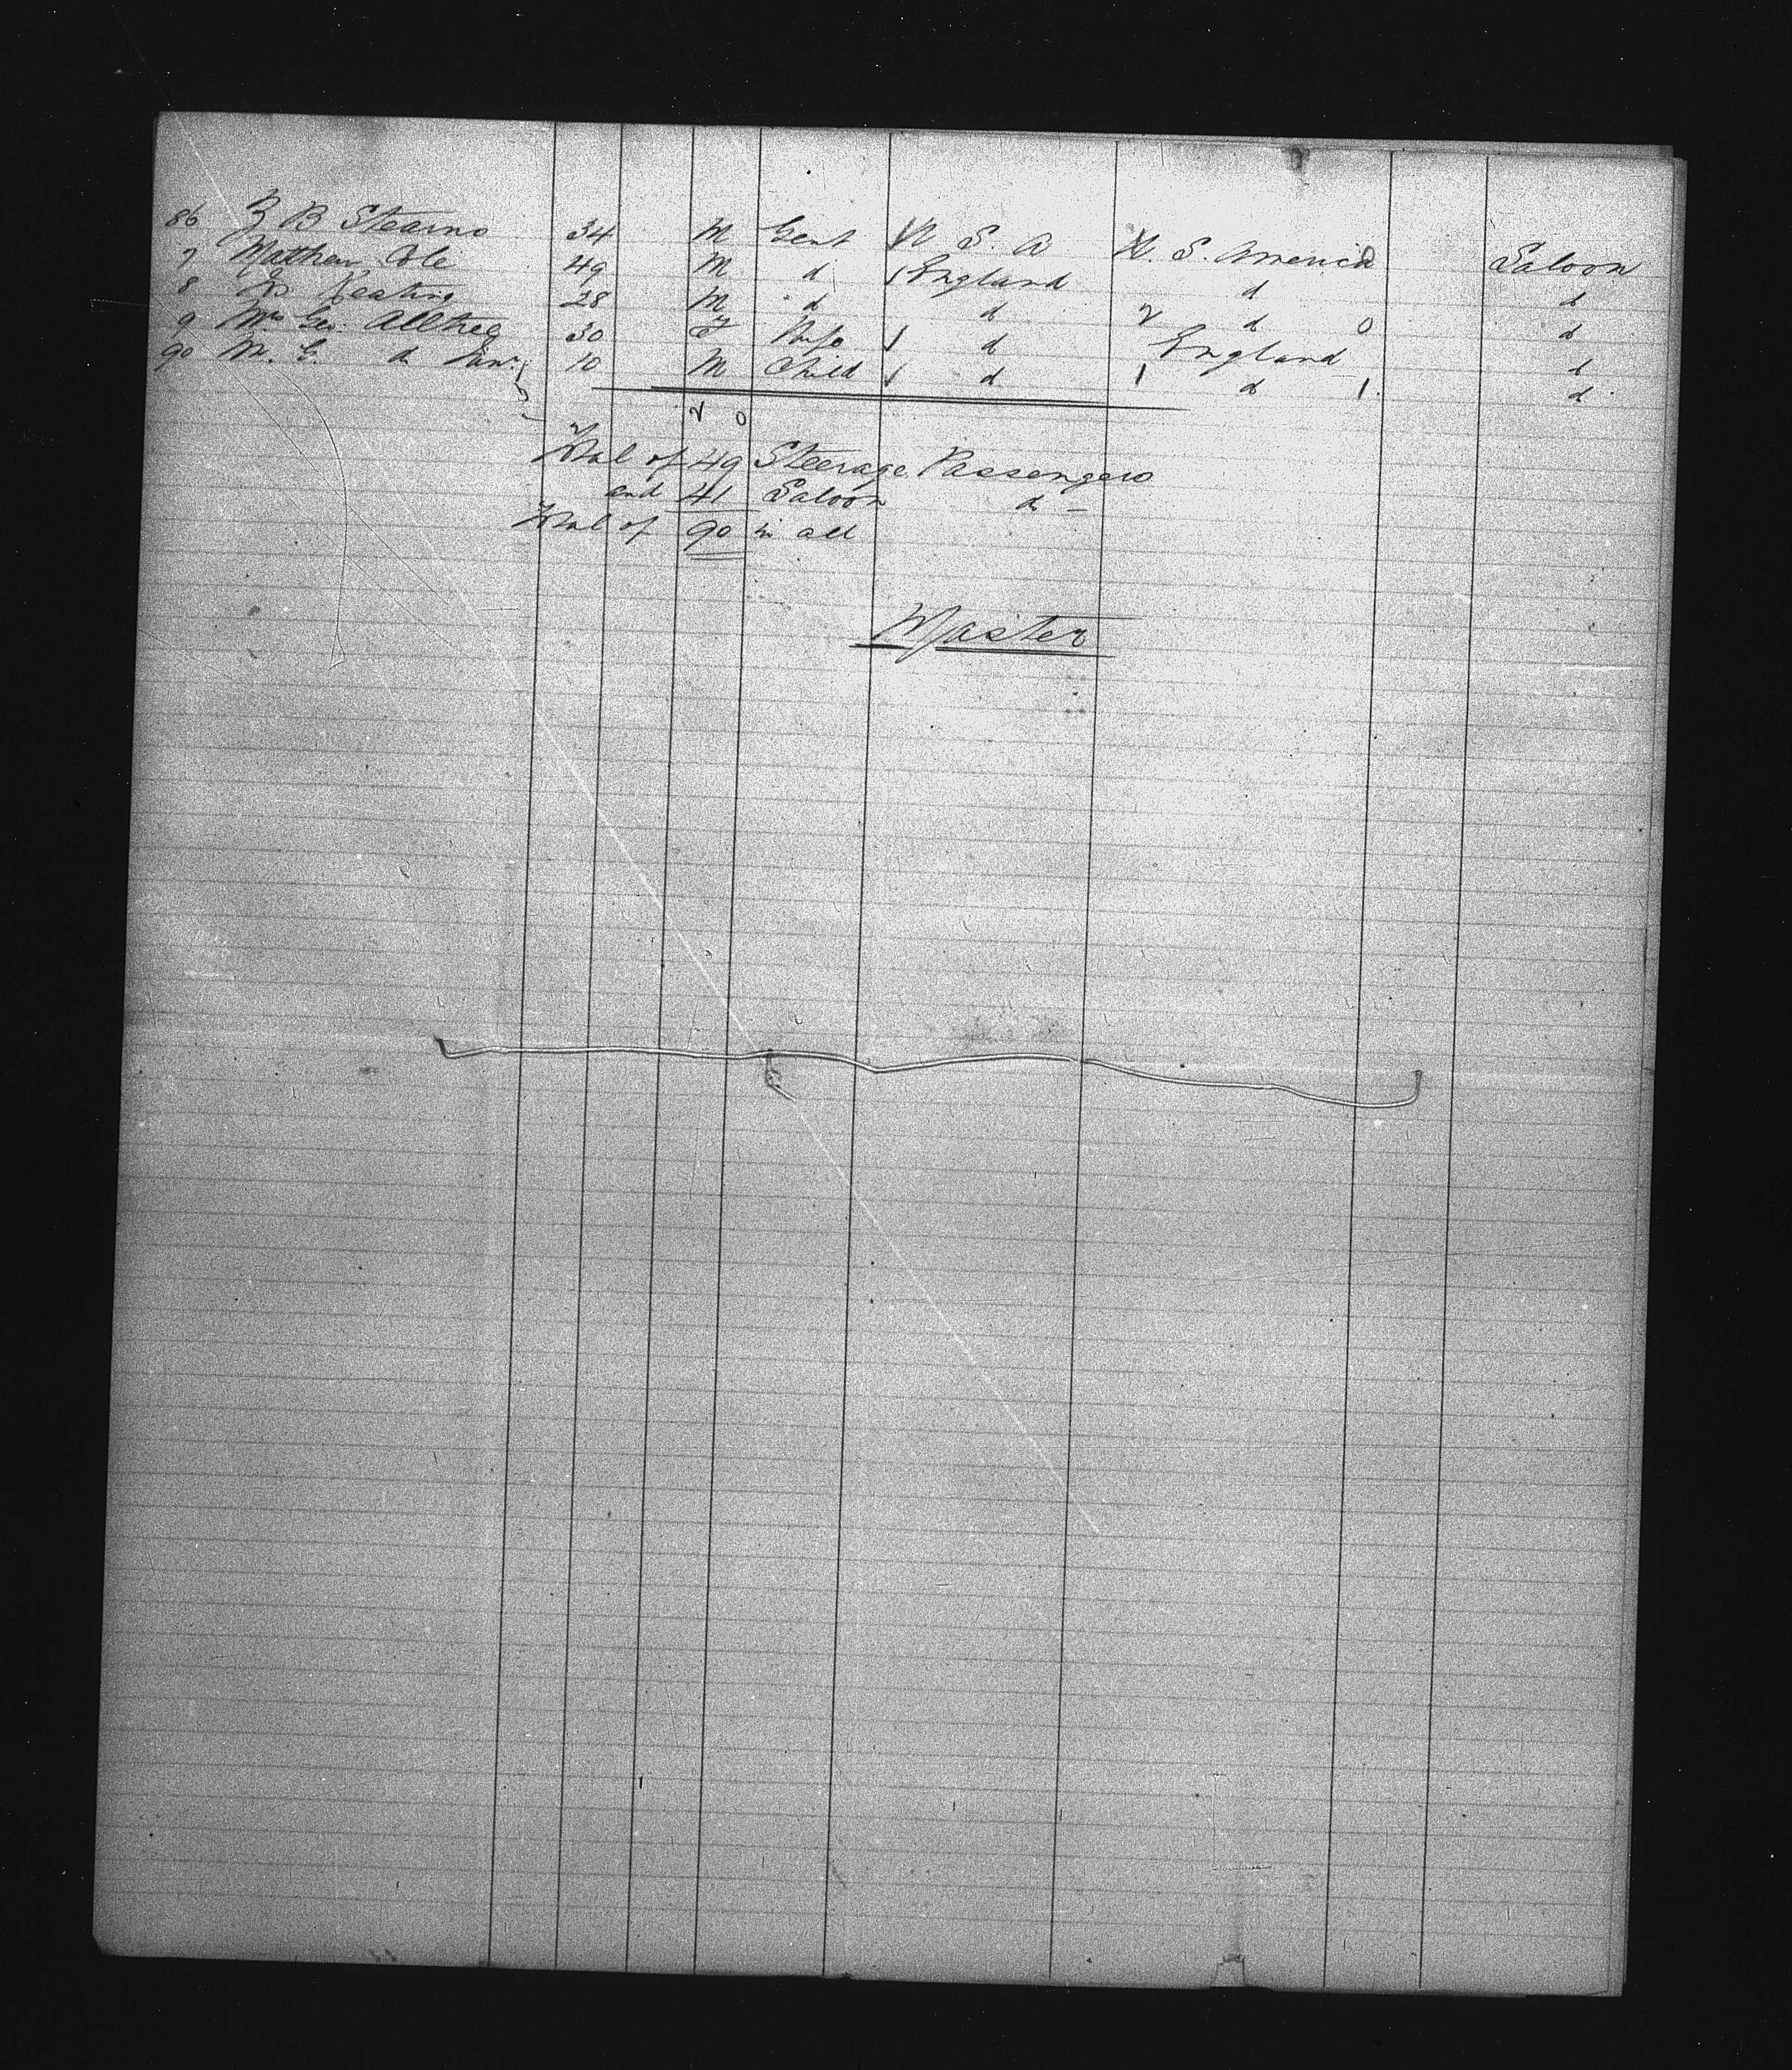 86 Z B Stearns 34 M Gent U S. A U. S. America Saloon
7 Matthew Cole 49 M d England d d
8 Keating 28 M d d 2 d 0 d
9 Mrs Geo. Alltree 30 F Wife d England d
90 M. G. d Junr 10 M Child d 1 d 1 d
2 0
Total of 49 Steerage Passengers
and 41 Saloon d -
Total of 90 in all
Master